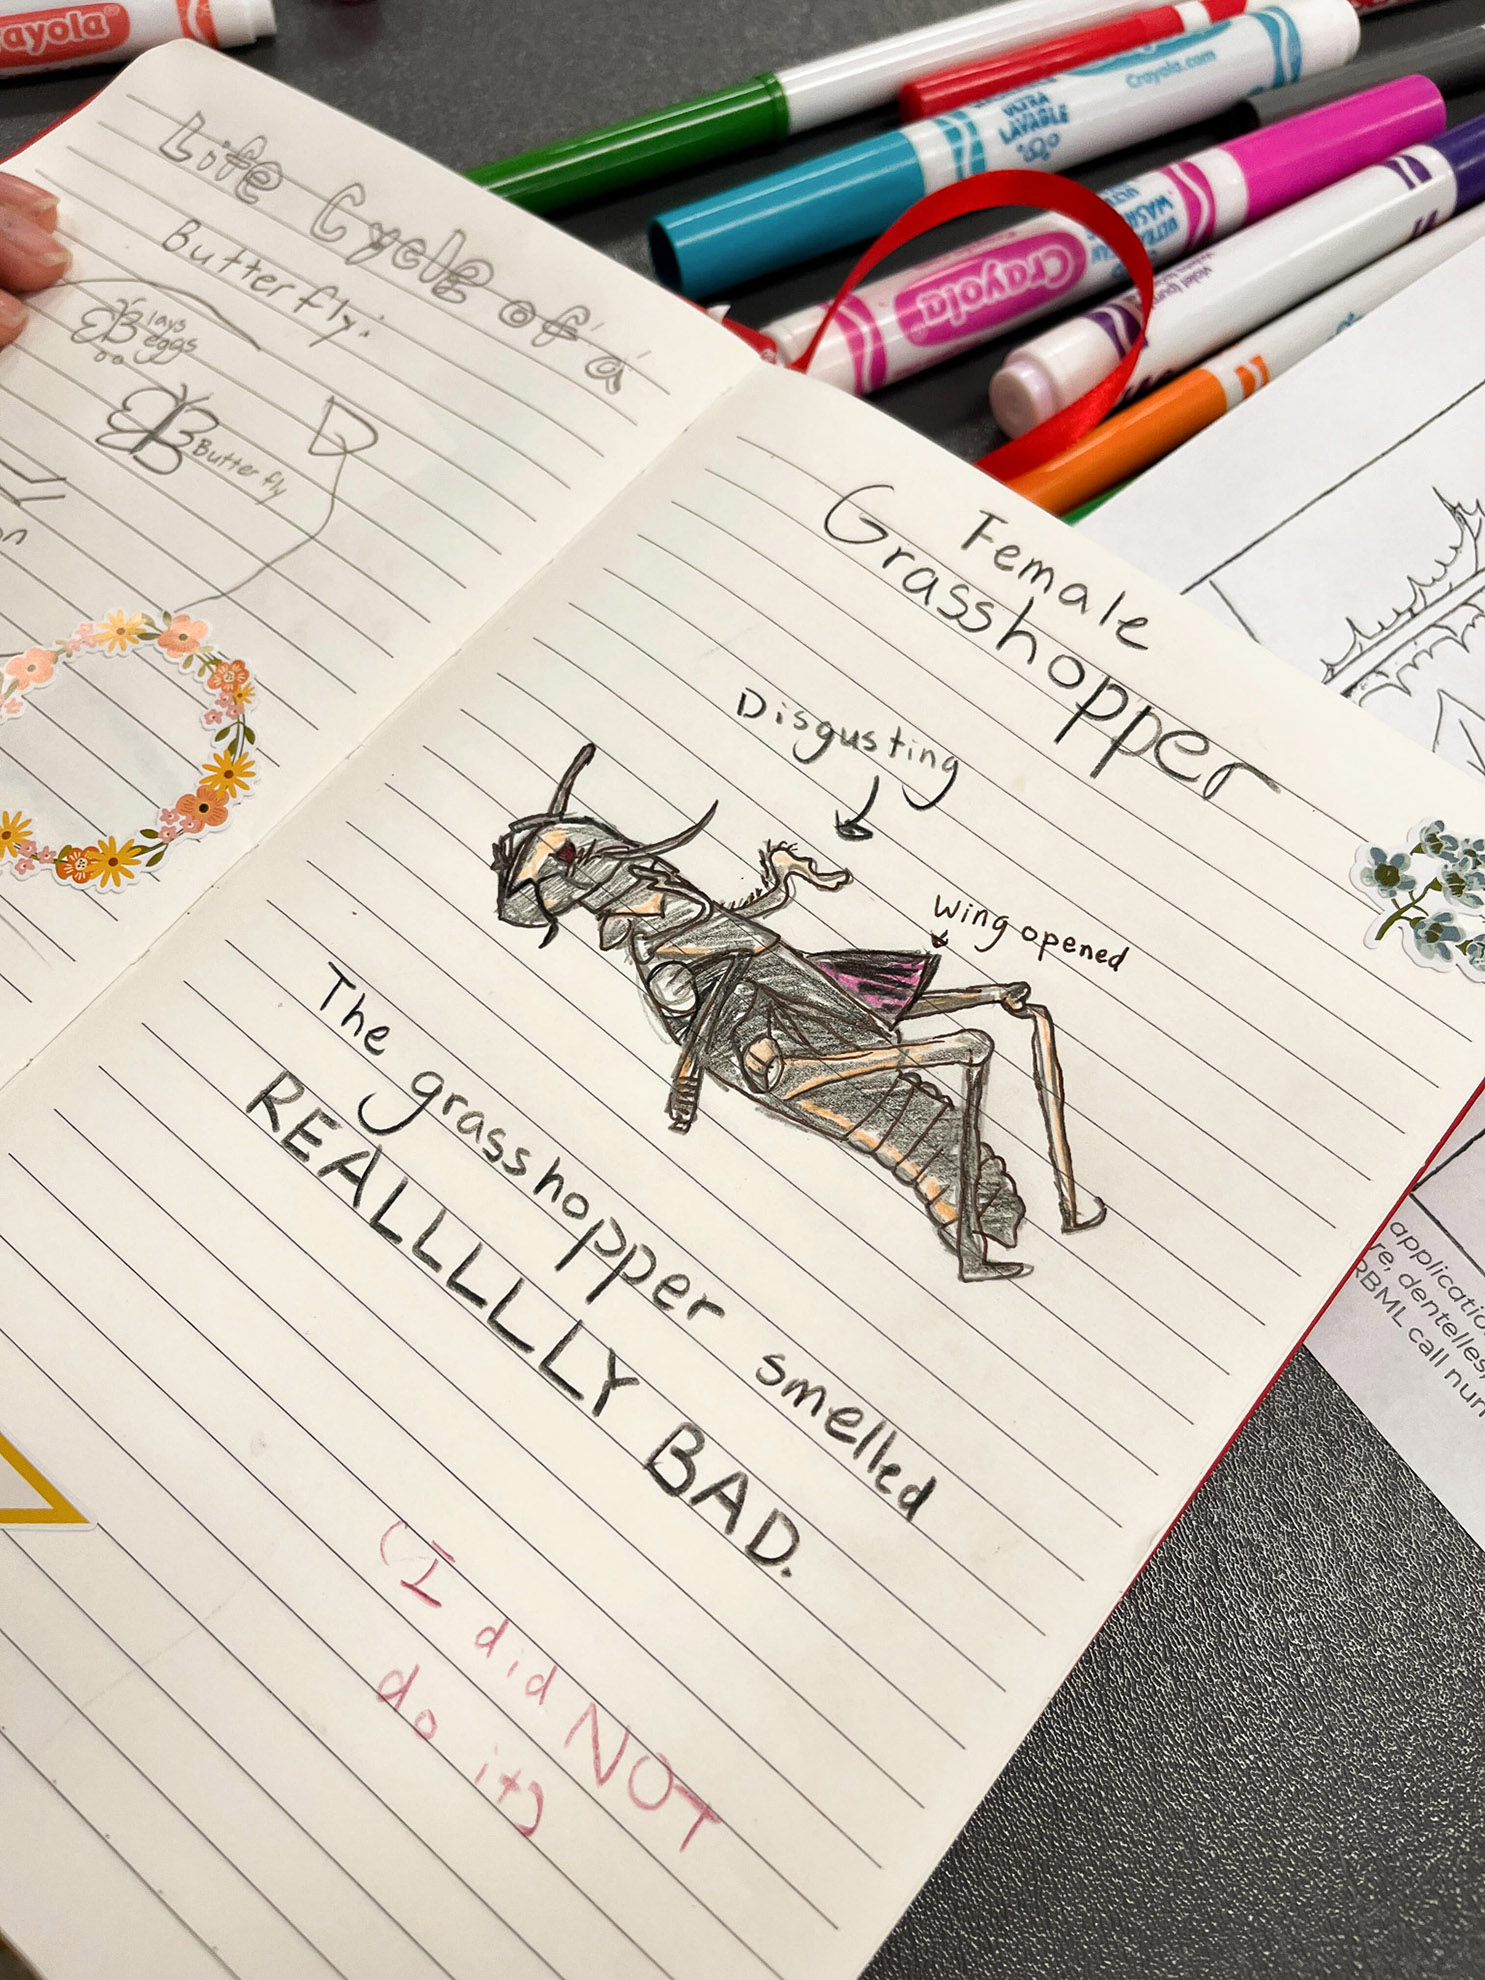 Life Cycle of a
Butterfly:
lays
eggs
Butterfly
Female
Grasshopper
Disgusting
Wing opened
The grasshopper smelled
REALLLLLLY BAD.
(I did NOT
do it)
Crayola
Crayola.com
ULTRA
LAVABLE
Crayola
ULTRA
WASHABLE
applicatio
re, dentelles,
RBML call num